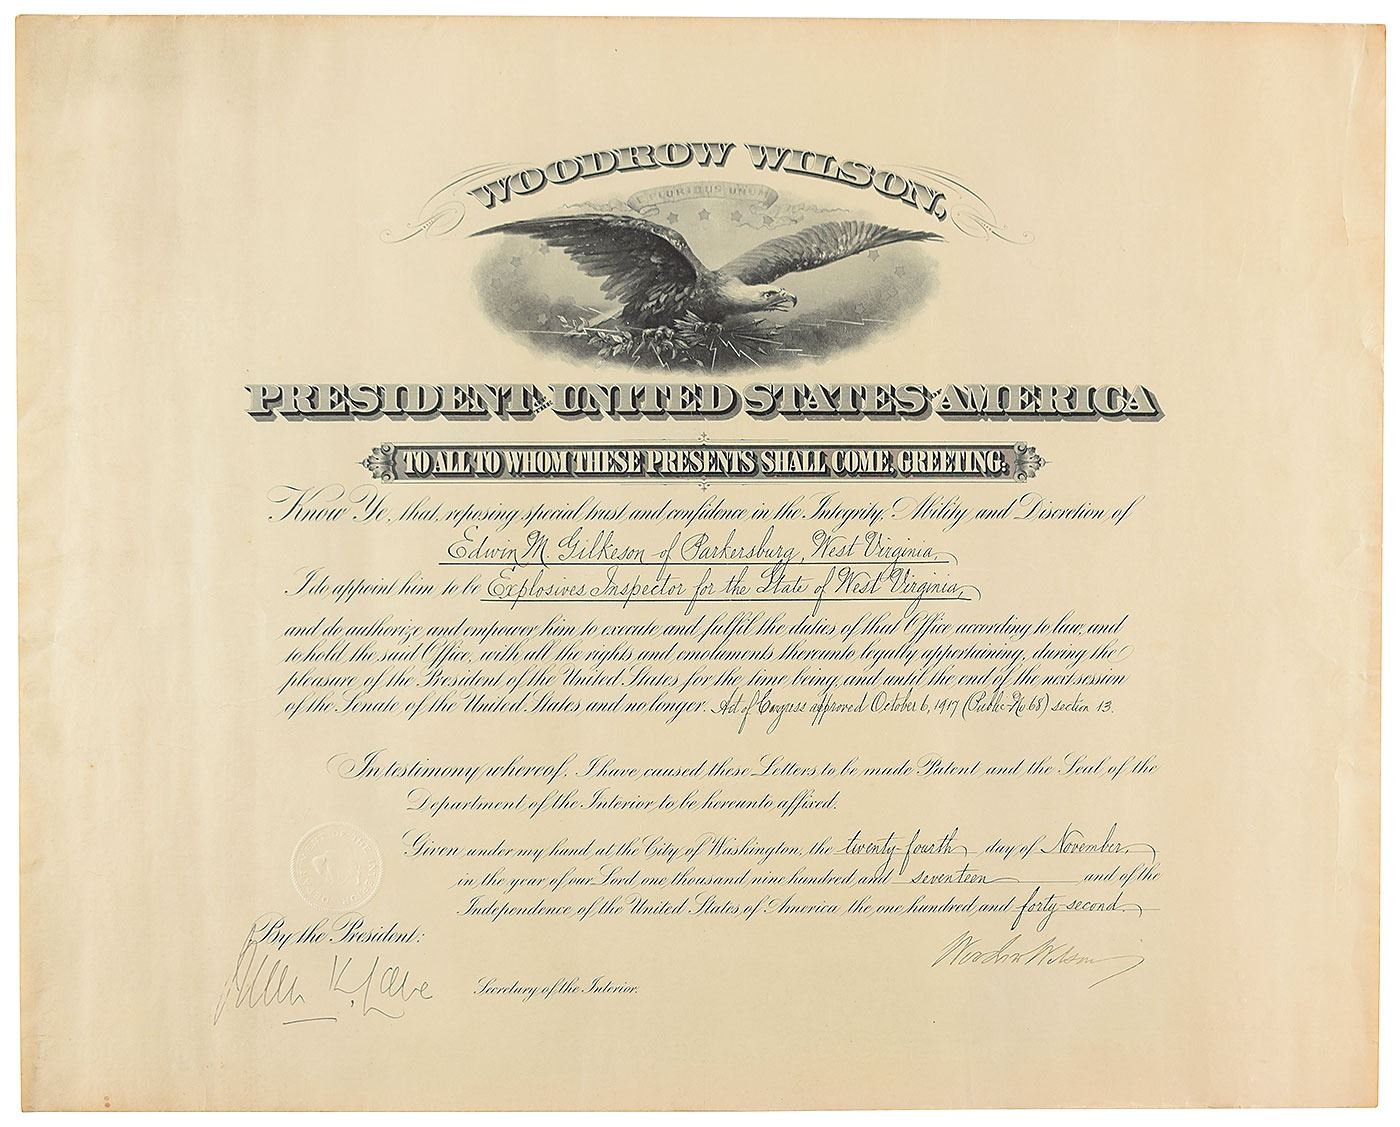 WOODROW WILSON,
E PLURIBUS UNUM
PRESIDENT OF THE UNITED STATES OF AMERICA
TO ALL TO WHOM THESE PRESENTS SHALL COME, GREETING:
Know Ye, that, reposing special trust and confidence in the Integrity, Ability and Discretion of
Edwin M. Gilkeson of Parkersburg, West Virginia,
I do appoint him to be Explosives Inspector for the State of West Virginia,
and do authorize and empower him to execute and fulfil the duties of that Office according to law, and
to hold the said Office, with all the rights and emoluments thereunto legally appertaining, during the
pleasure of the President of the United States for the time being, and until the end of the next session
of the Senate of the United States and no longer. Act of Congress approved October 6, 1917 (Public-No 68) section 13.
In testimony whereof, I have caused these Letters to be made Patent and the Seal of the
Department of the Interior to be hereunto affixed.
Given under my hand at the City of Washington, the twenty-fourth day of November,
in the year of our Lord one thousand nine hundred and seventeen and of the
Independence of the United States of America the one hundred and forty-second.
By the President:
Woodrow Wilson
Franklin K. Lane
Secretary of the Interior.